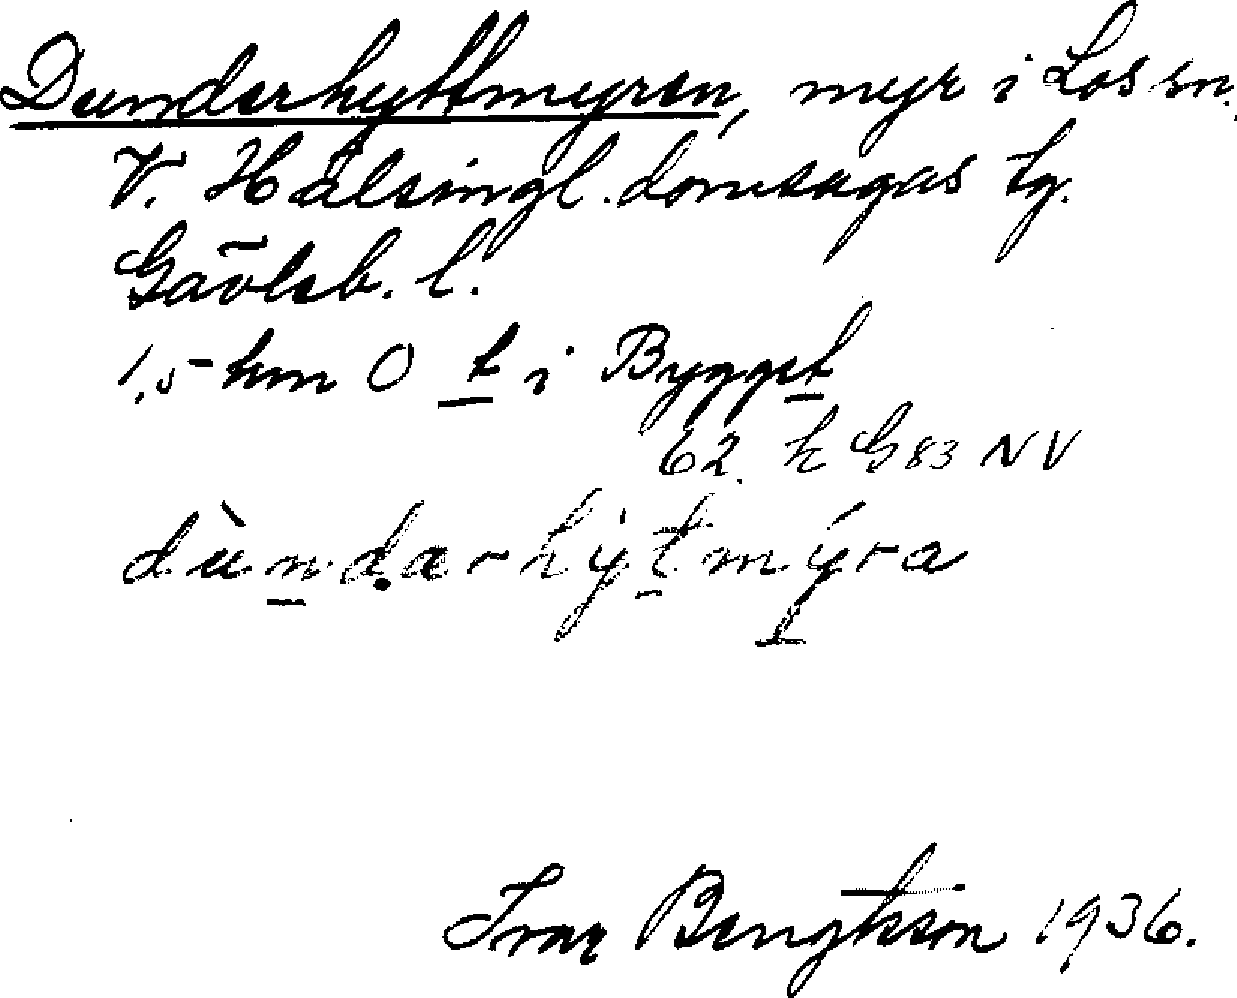 Dunderhyttmyren, myr i Los sn.
V. Hälsingl. domsagas tg.
Gävleb. l.
1,5 km O t i Bygget
62. h G 83 NV
dùndærhỳtmýra
Ivar Bengtsson 1936.